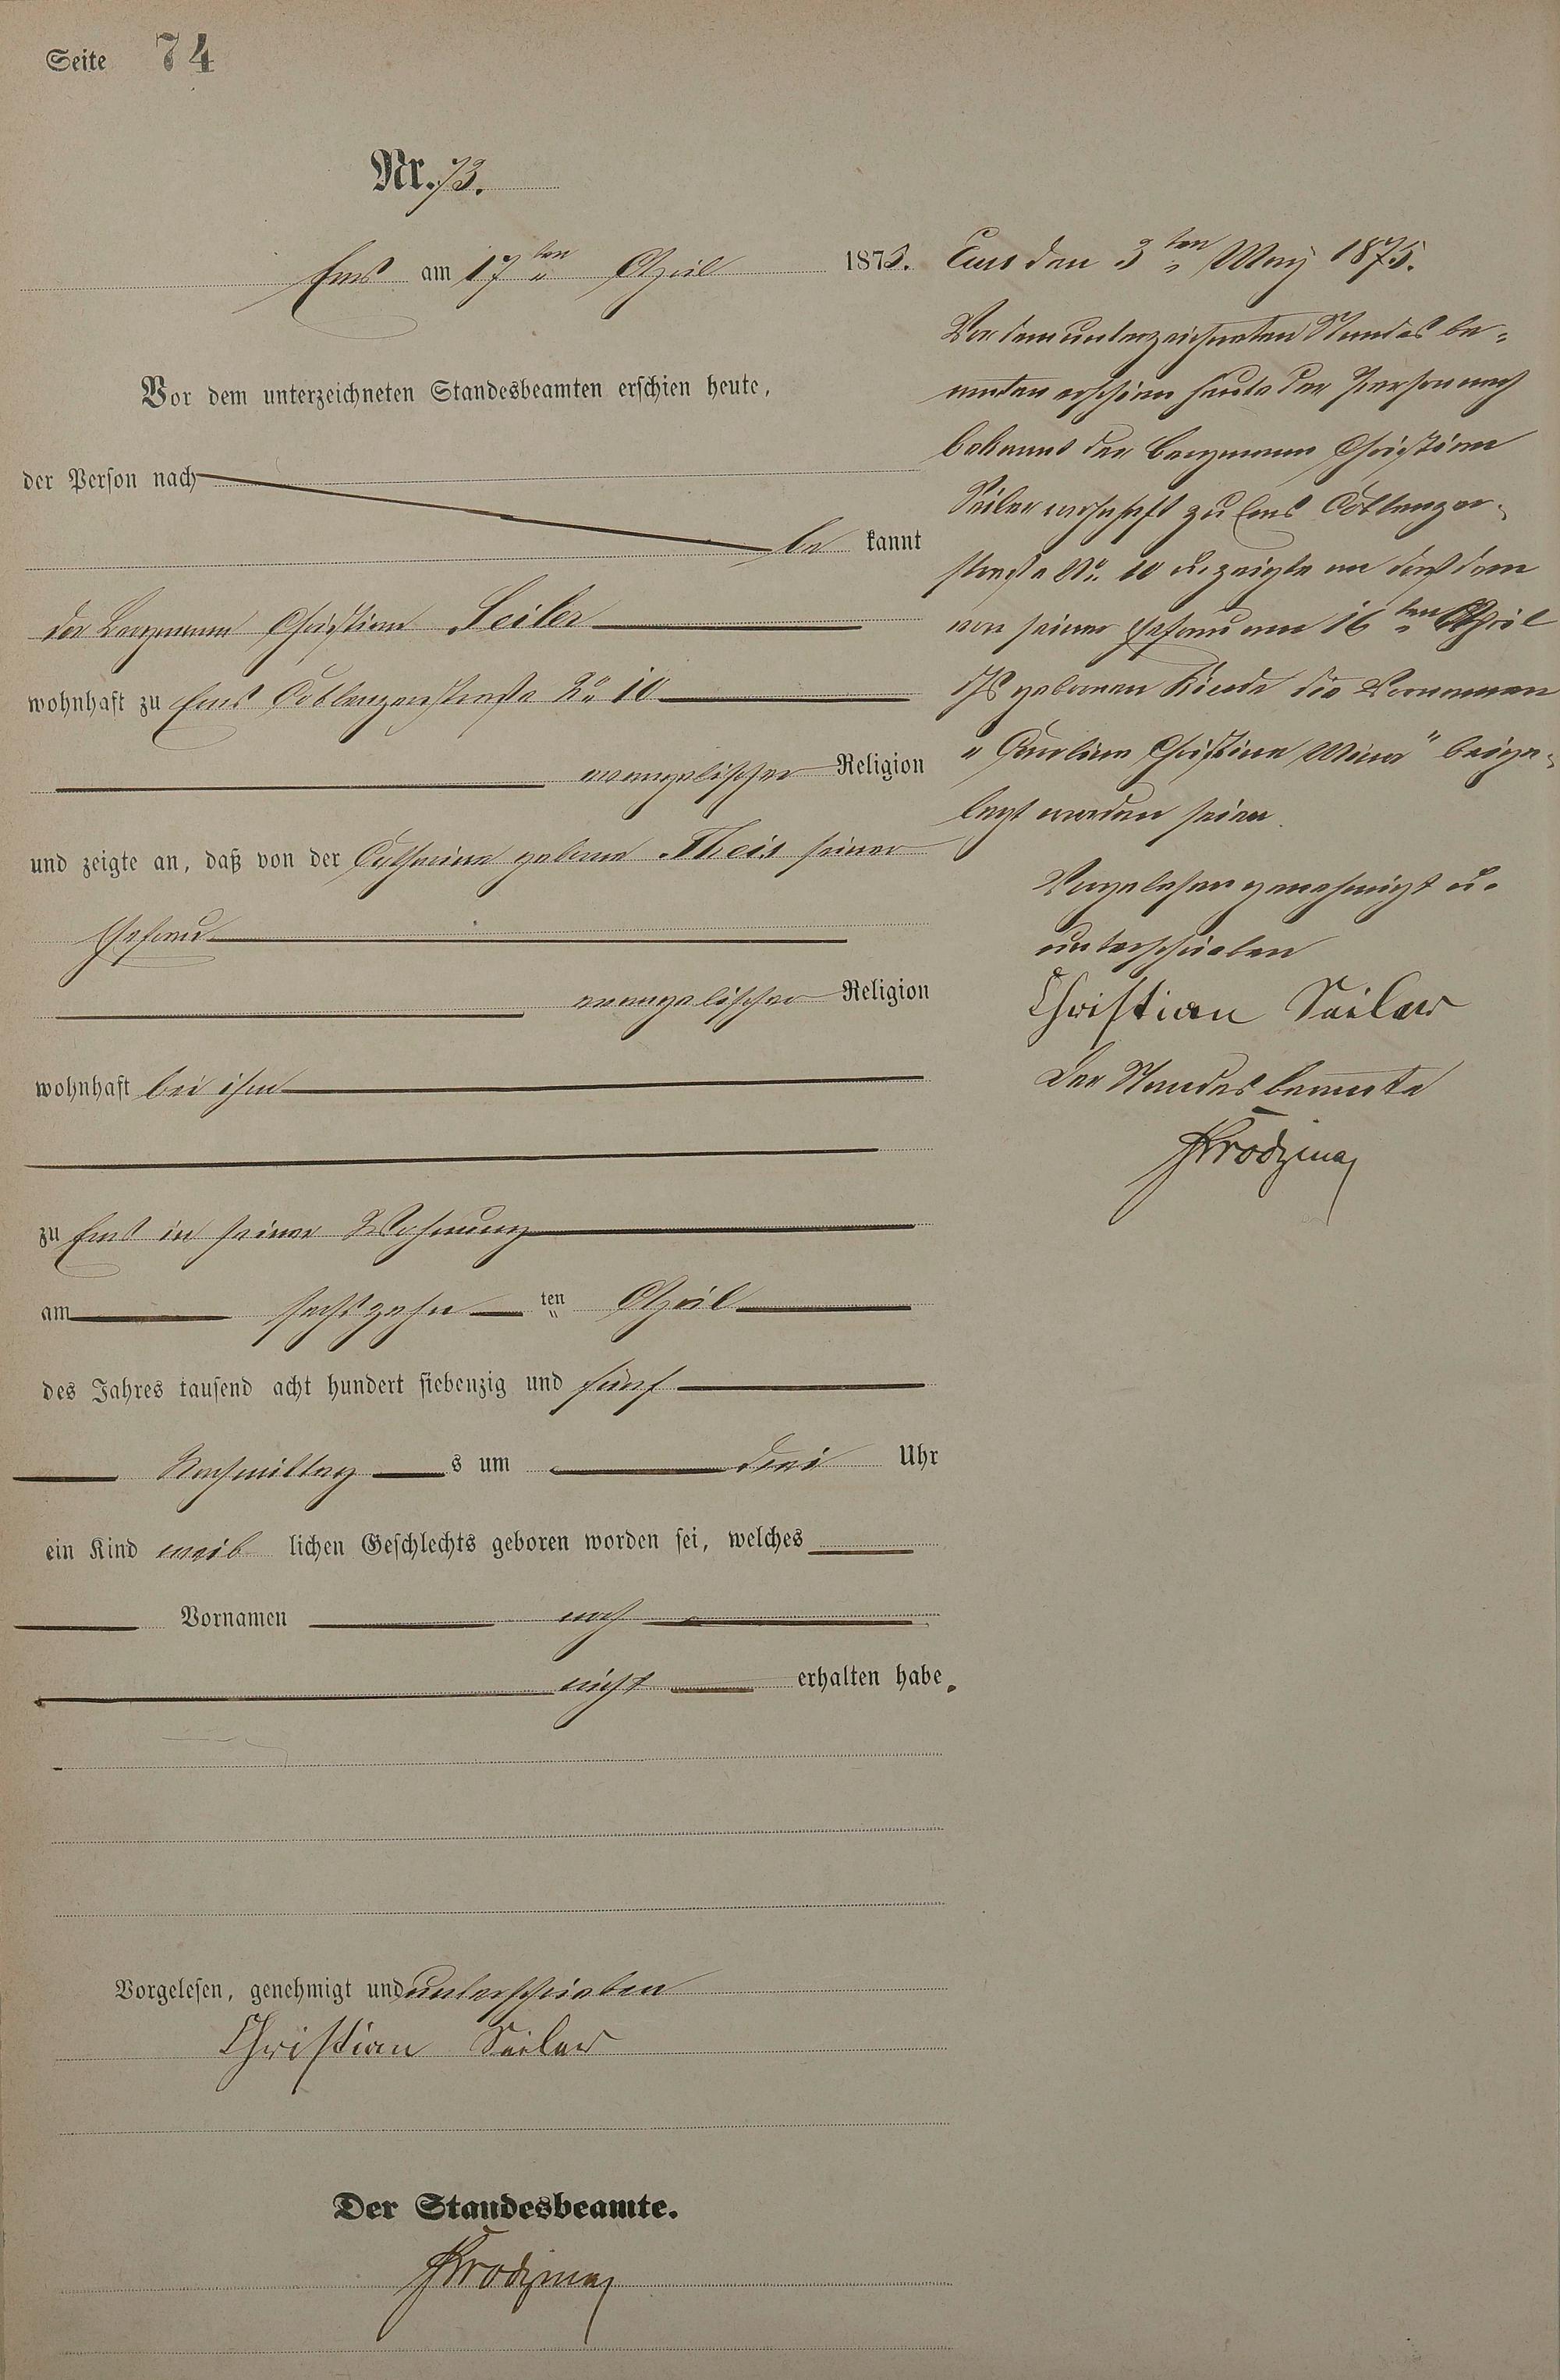 Seite 74
Nr. 73.
Ems am 17ten April 1875.
Vor dem unterzeichneten Standesbeamten erschien heute,
der Person nach
be kannt
der Bergmann Christian Seiler
wohnhaft zu Ems Coblenzerstraße No 10
evangelischer Religion
und zeigte an, daß von der Catharina geborne Theis seiner
Ehefrau
evangelischer Religion
wohnhaft bei ihm
zu Ems in seiner Wohnung
am sechszehn ten April
des Jahres tausend acht hundert siebenzig und fünf
Nachmittag s um drei Uhr
ein Kind weib lichen Geschlechts geboren worden sei, welches
Vornamen noch
nicht erhalten habe.
Vorgelesen, genehmigt und unterschrieben
Christian Seiler
Der Standesbeamte.
Ems den 3ten May 1875.
Vor dem unterzeichneten Standesbe-
amten erschien heute der Person nach
bekannt der Bergmann Christian
Seiler wohnhaft zu Ems Coblenzer-
straße No. 10 u. zeigte an daß dem
von seiner Ehefrau am 16ten April
geborenen Kinde die Vornamen
"Caroline Christine Mina" beige-
legt worden seien.
Vorgelesen genehmigt u.
unterschrieben
Christian Seiler
Der Standesbeamte